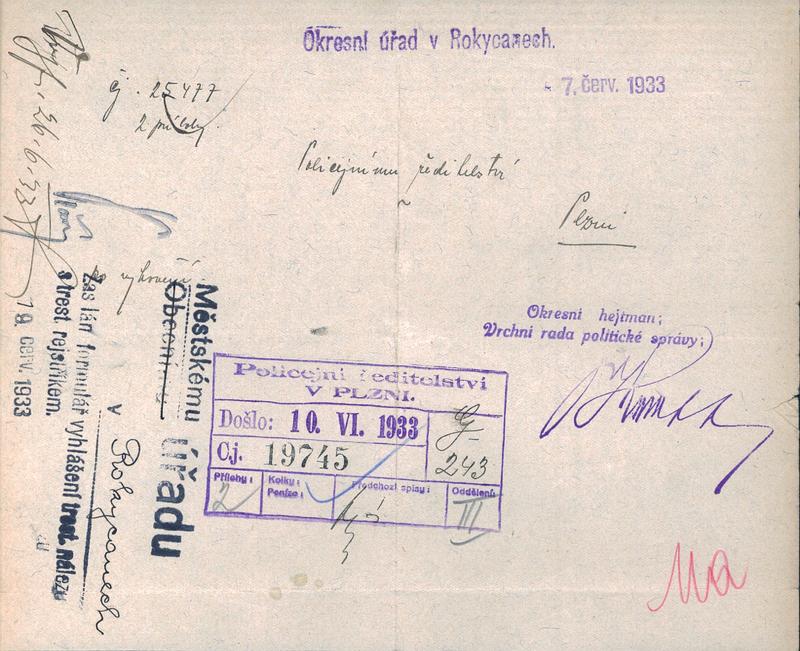 Okresní úřad v Rokycanech.
- 7. červ. 1933
čj. 25477
2 přílohy.
Policejnímu ředitelství
Plzni
po vykonání
Okresní hejtman;
Vrchní rada politické správy;
Policejní ředitelství
V PLZNI.
Došlo: 10. VI. 1933
Čj. 19745
G-
243
Přílohy:
2
Kolky:
Peníze:
Předchozí spisy:
Oddělení:
III
Ma
26.6.33
Městskému
Obecní úřadu
v Rokycanech
Zaslán formulář vyhlášení trest. nálezu
s trest. rejstříkem.
19. červ. 1933